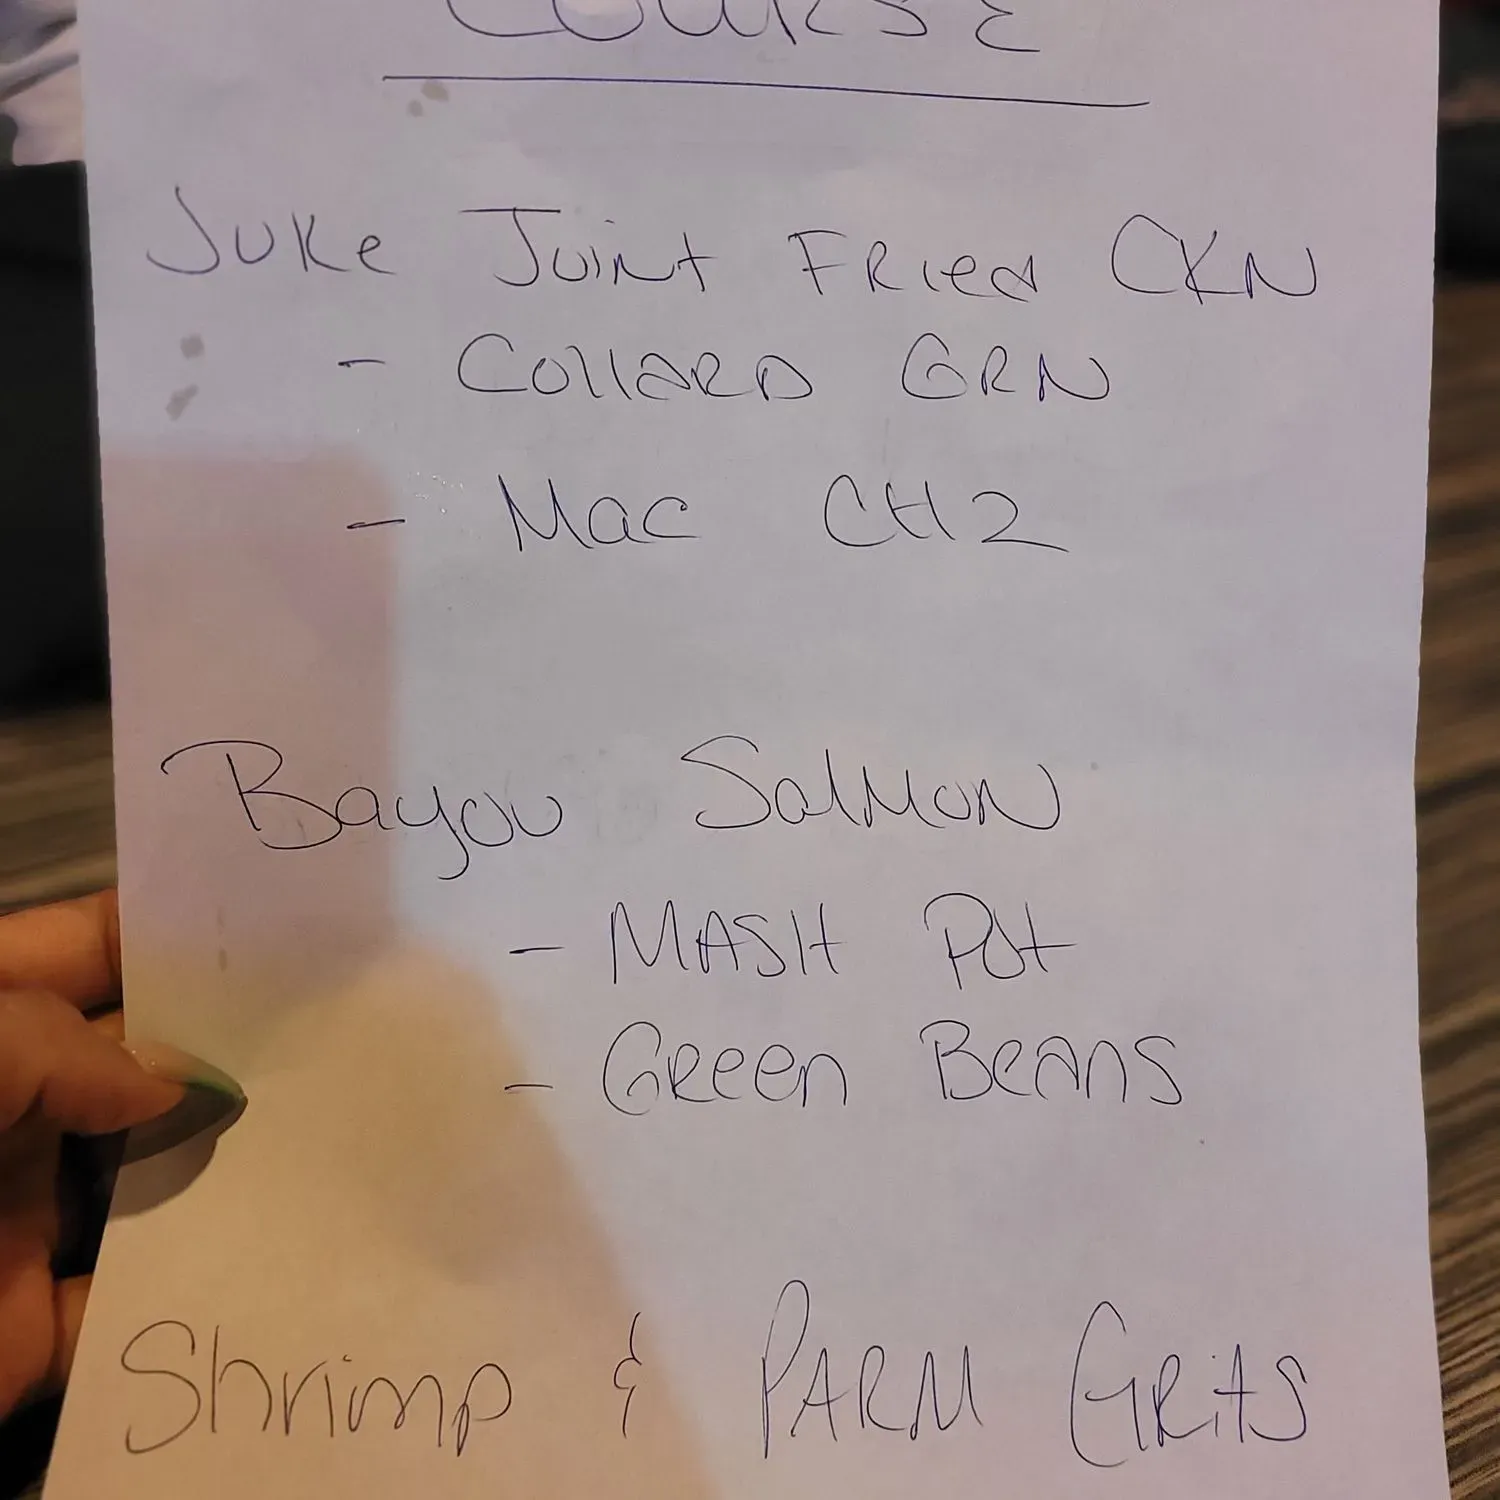 COURSE
Juke Joint Fried CKN
- Collard GRN
- Mac CHZ
Bayou Salmon
- MASH Pot
- Green Beans
Shrimp & PARM Grits